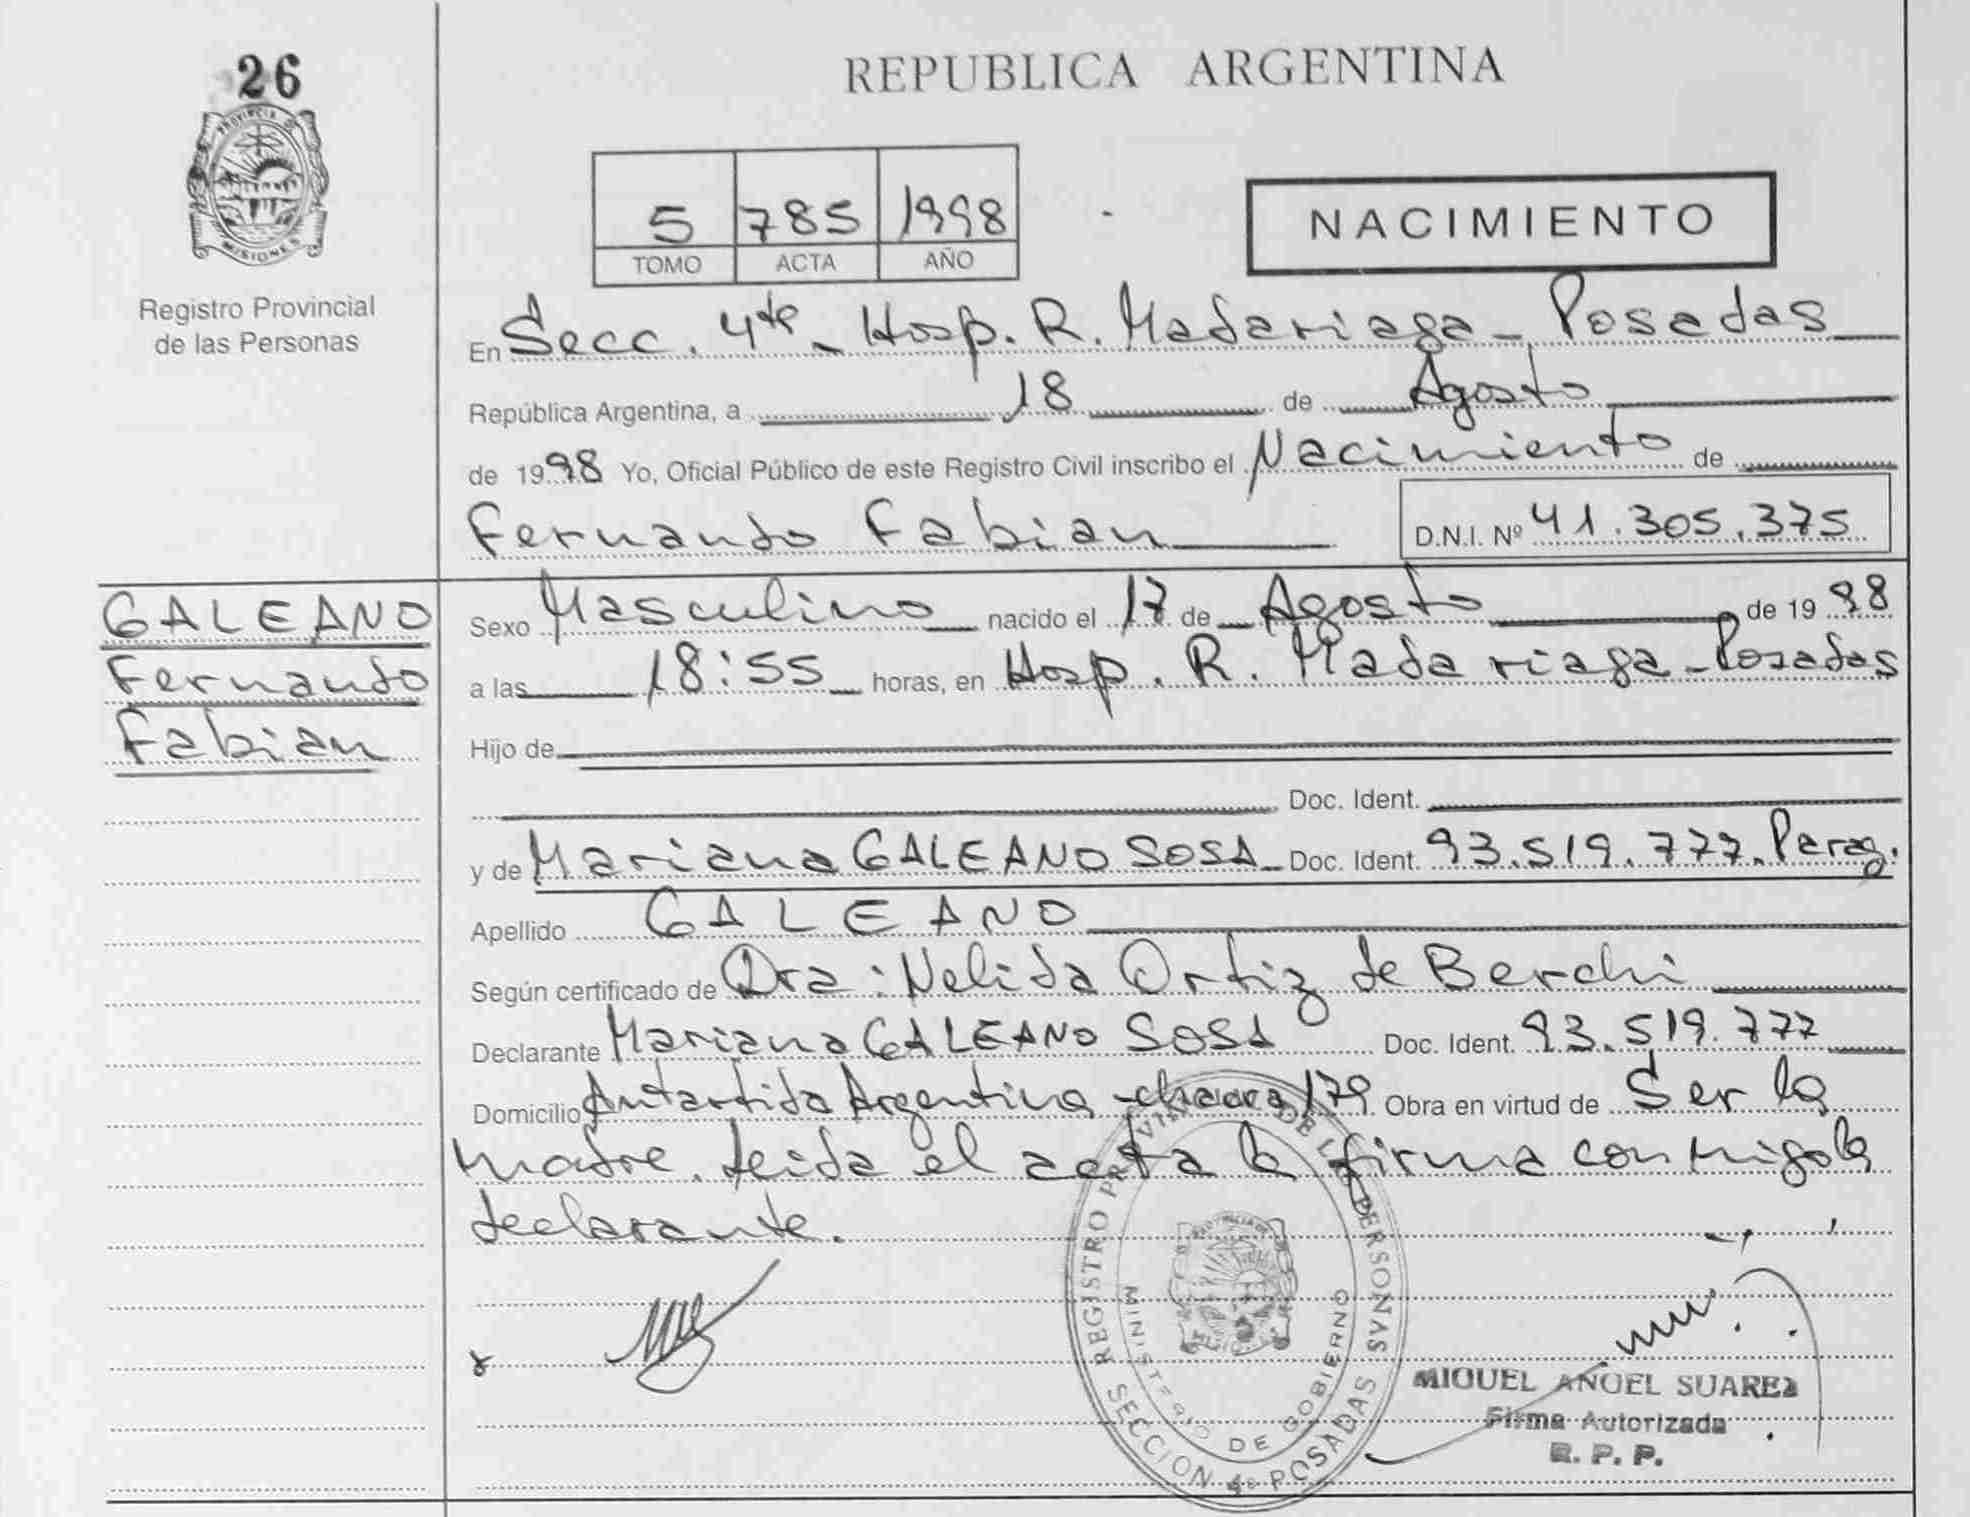 26
PROVINCIA DE
MISIONES
Registro Provincial
de las Personas
REPUBLICA ARGENTINA
5 785 1998
TOMO ACTA AÑO
NACIMIENTO
En Secc. 4ta - Hosp. R. Madariaga - Posadas
República Argentina, a 18 de Agosto
de 1998 Yo, Oficial Público de este Registro Civil inscribo el Nacimiento de
Fernando Fabian D.N.I. Nº 41.305.375
GALEANO
Fernando
Fabian
Sexo Masculino nacido el 17 de Agosto de 19 98
a las 18:55 horas, en Hosp. R. Madariaga - Posadas
Hijo de
Doc. Ident.
y de Mariana GALEANO SOSA Doc. Ident. 93.519.777. Parag.
Apellido GALEANO
Según certificado de Dra: Nelida Ortiz de Berchi
Declarante Mariana GALEANO SOSA Doc. Ident. 93.519.777
Domicilio Antartida Argentina - chacra 179 Obra en virtud de Ser la
madre. Leida el acta la firma conmigo la
declarante.
REGISTRO PROVINCIAL DE LAS PERSONAS
MINISTERIO DE GOBIERNO
SECCION 4º POSADAS
MIGUEL ANGEL SUAREZ
Firma Autorizada
R. P. P.